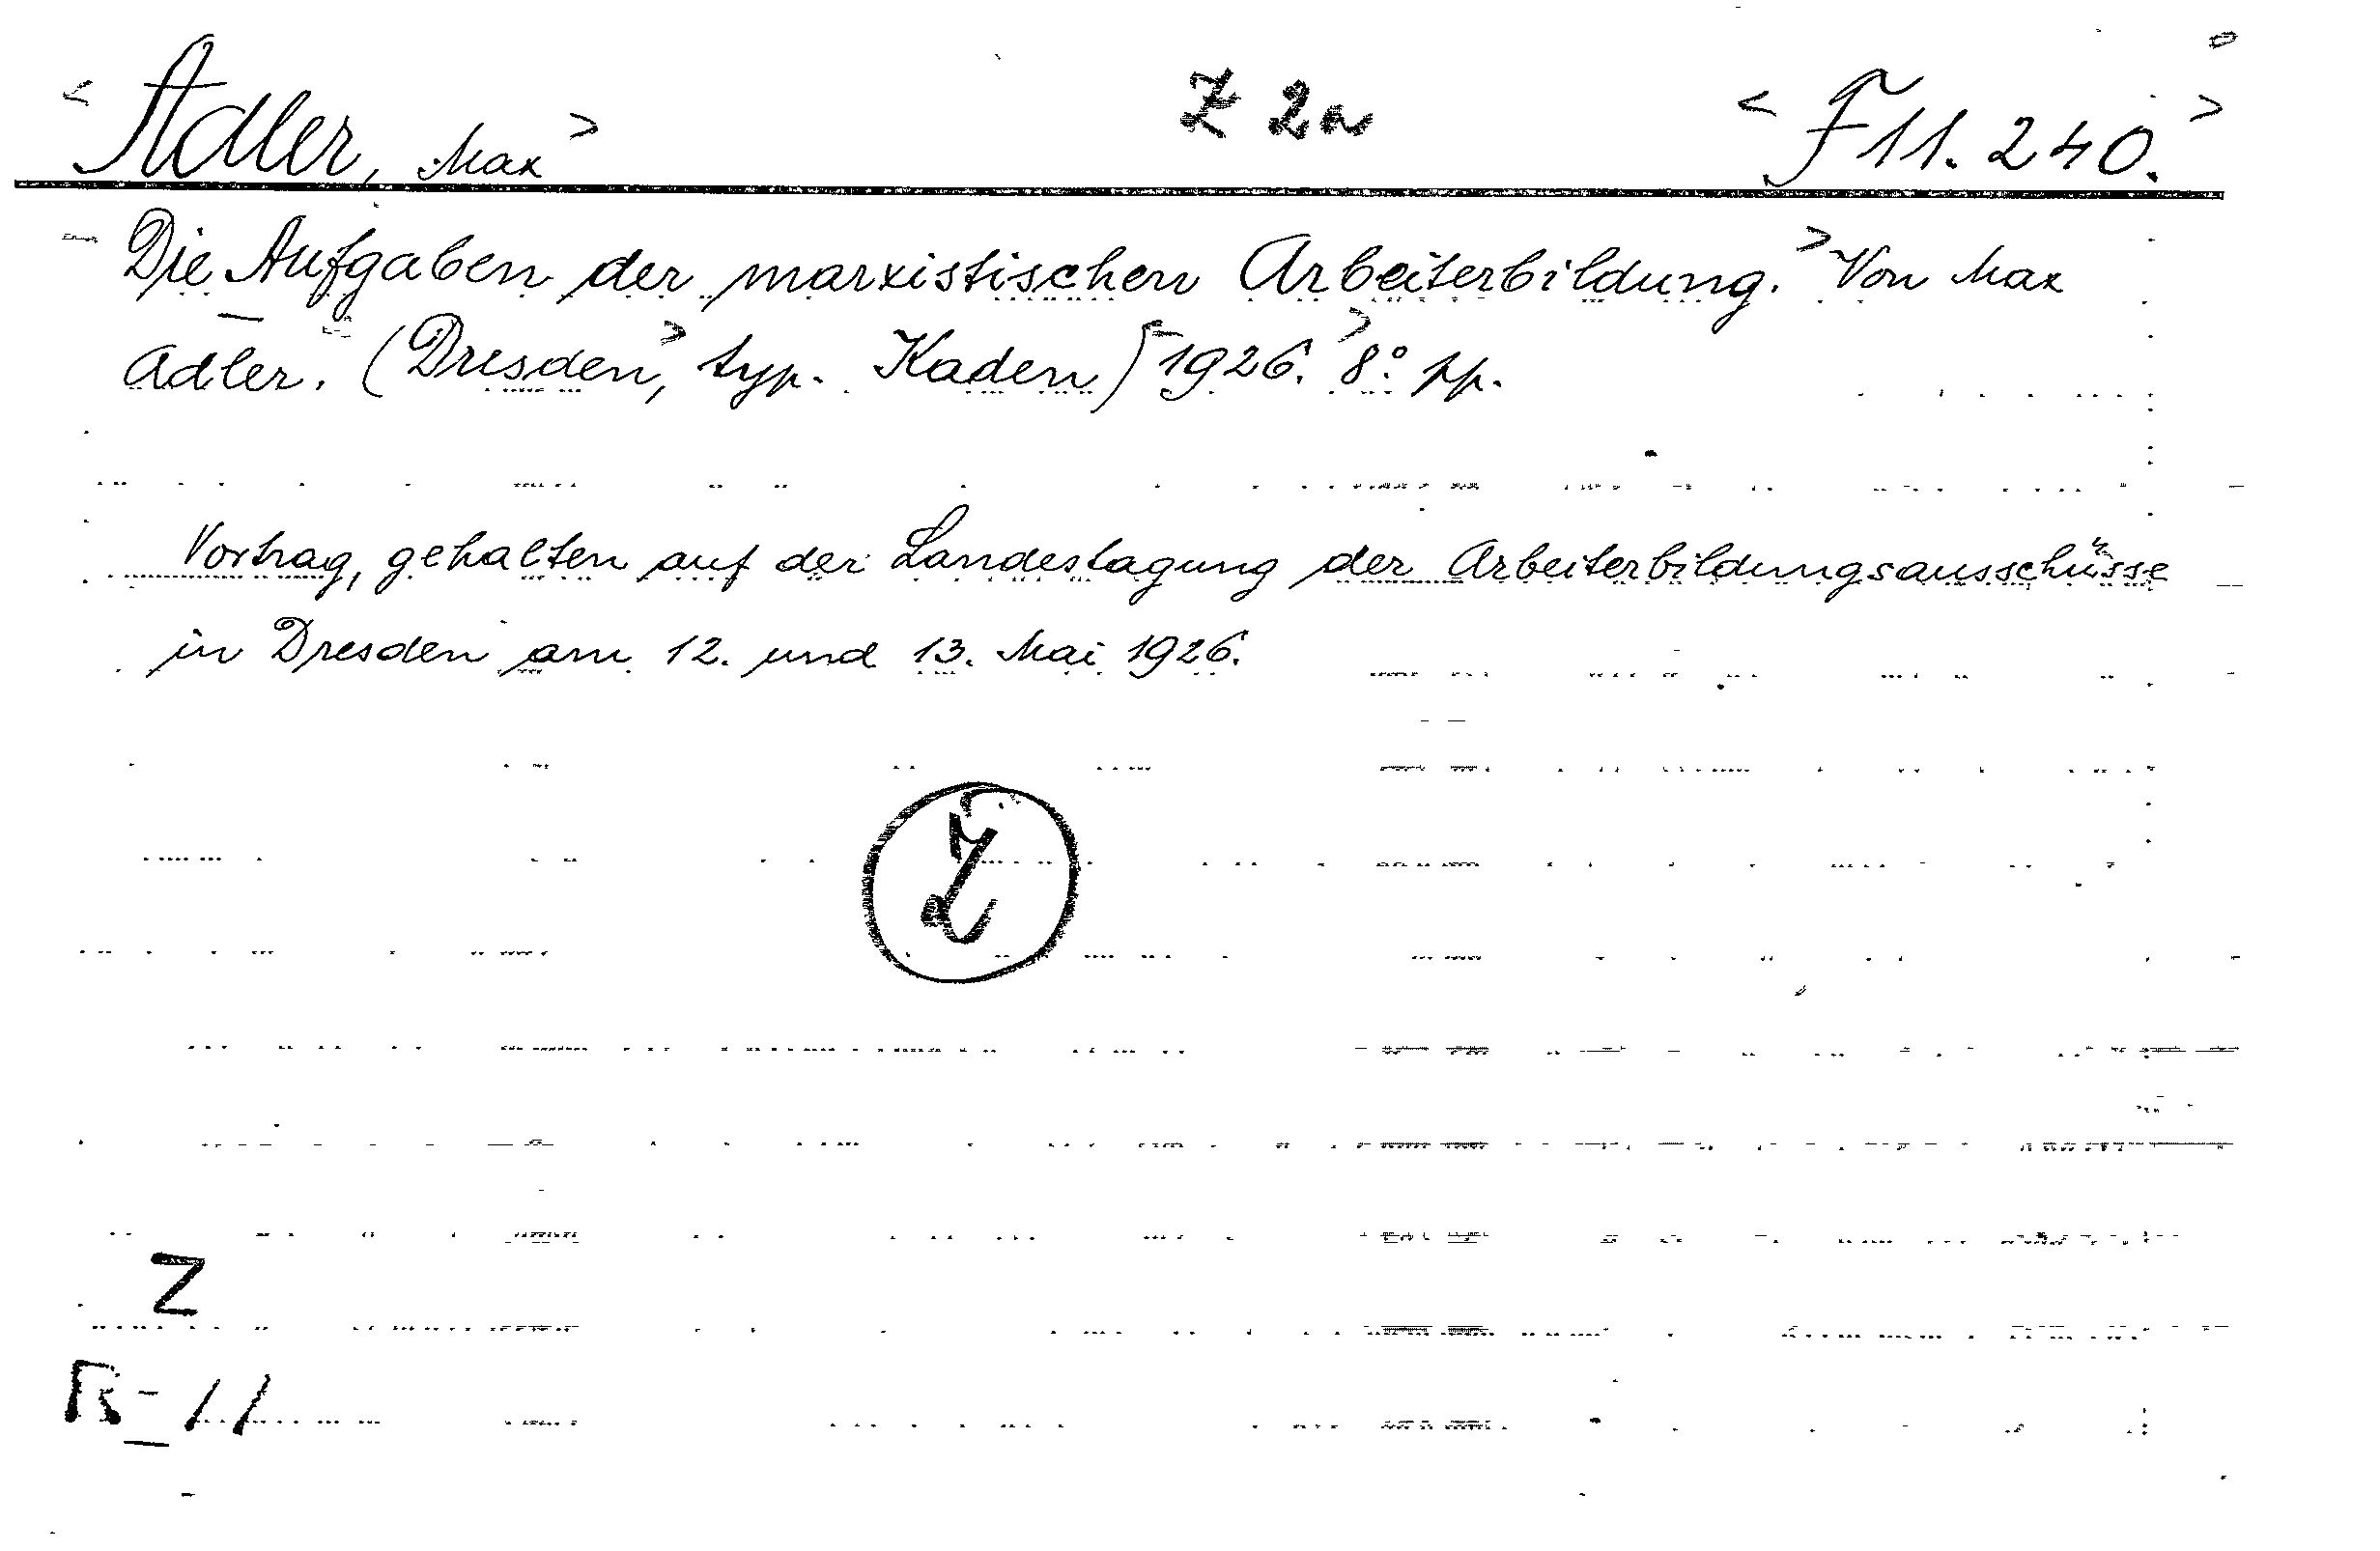 <Adler, Max> Z 2a <F 11.240.>
Die Aufgaben der marxistischen Arbeiterbildung.> Von Max
Adler. (<Dresden>, typ. Kaden) <1926.> 8° pp.
Vortrag, gehalten auf der Landestagung der Arbeiterbildungsausschüsse
in Dresden am 12. und 13. Mai 1926.
Z
Z